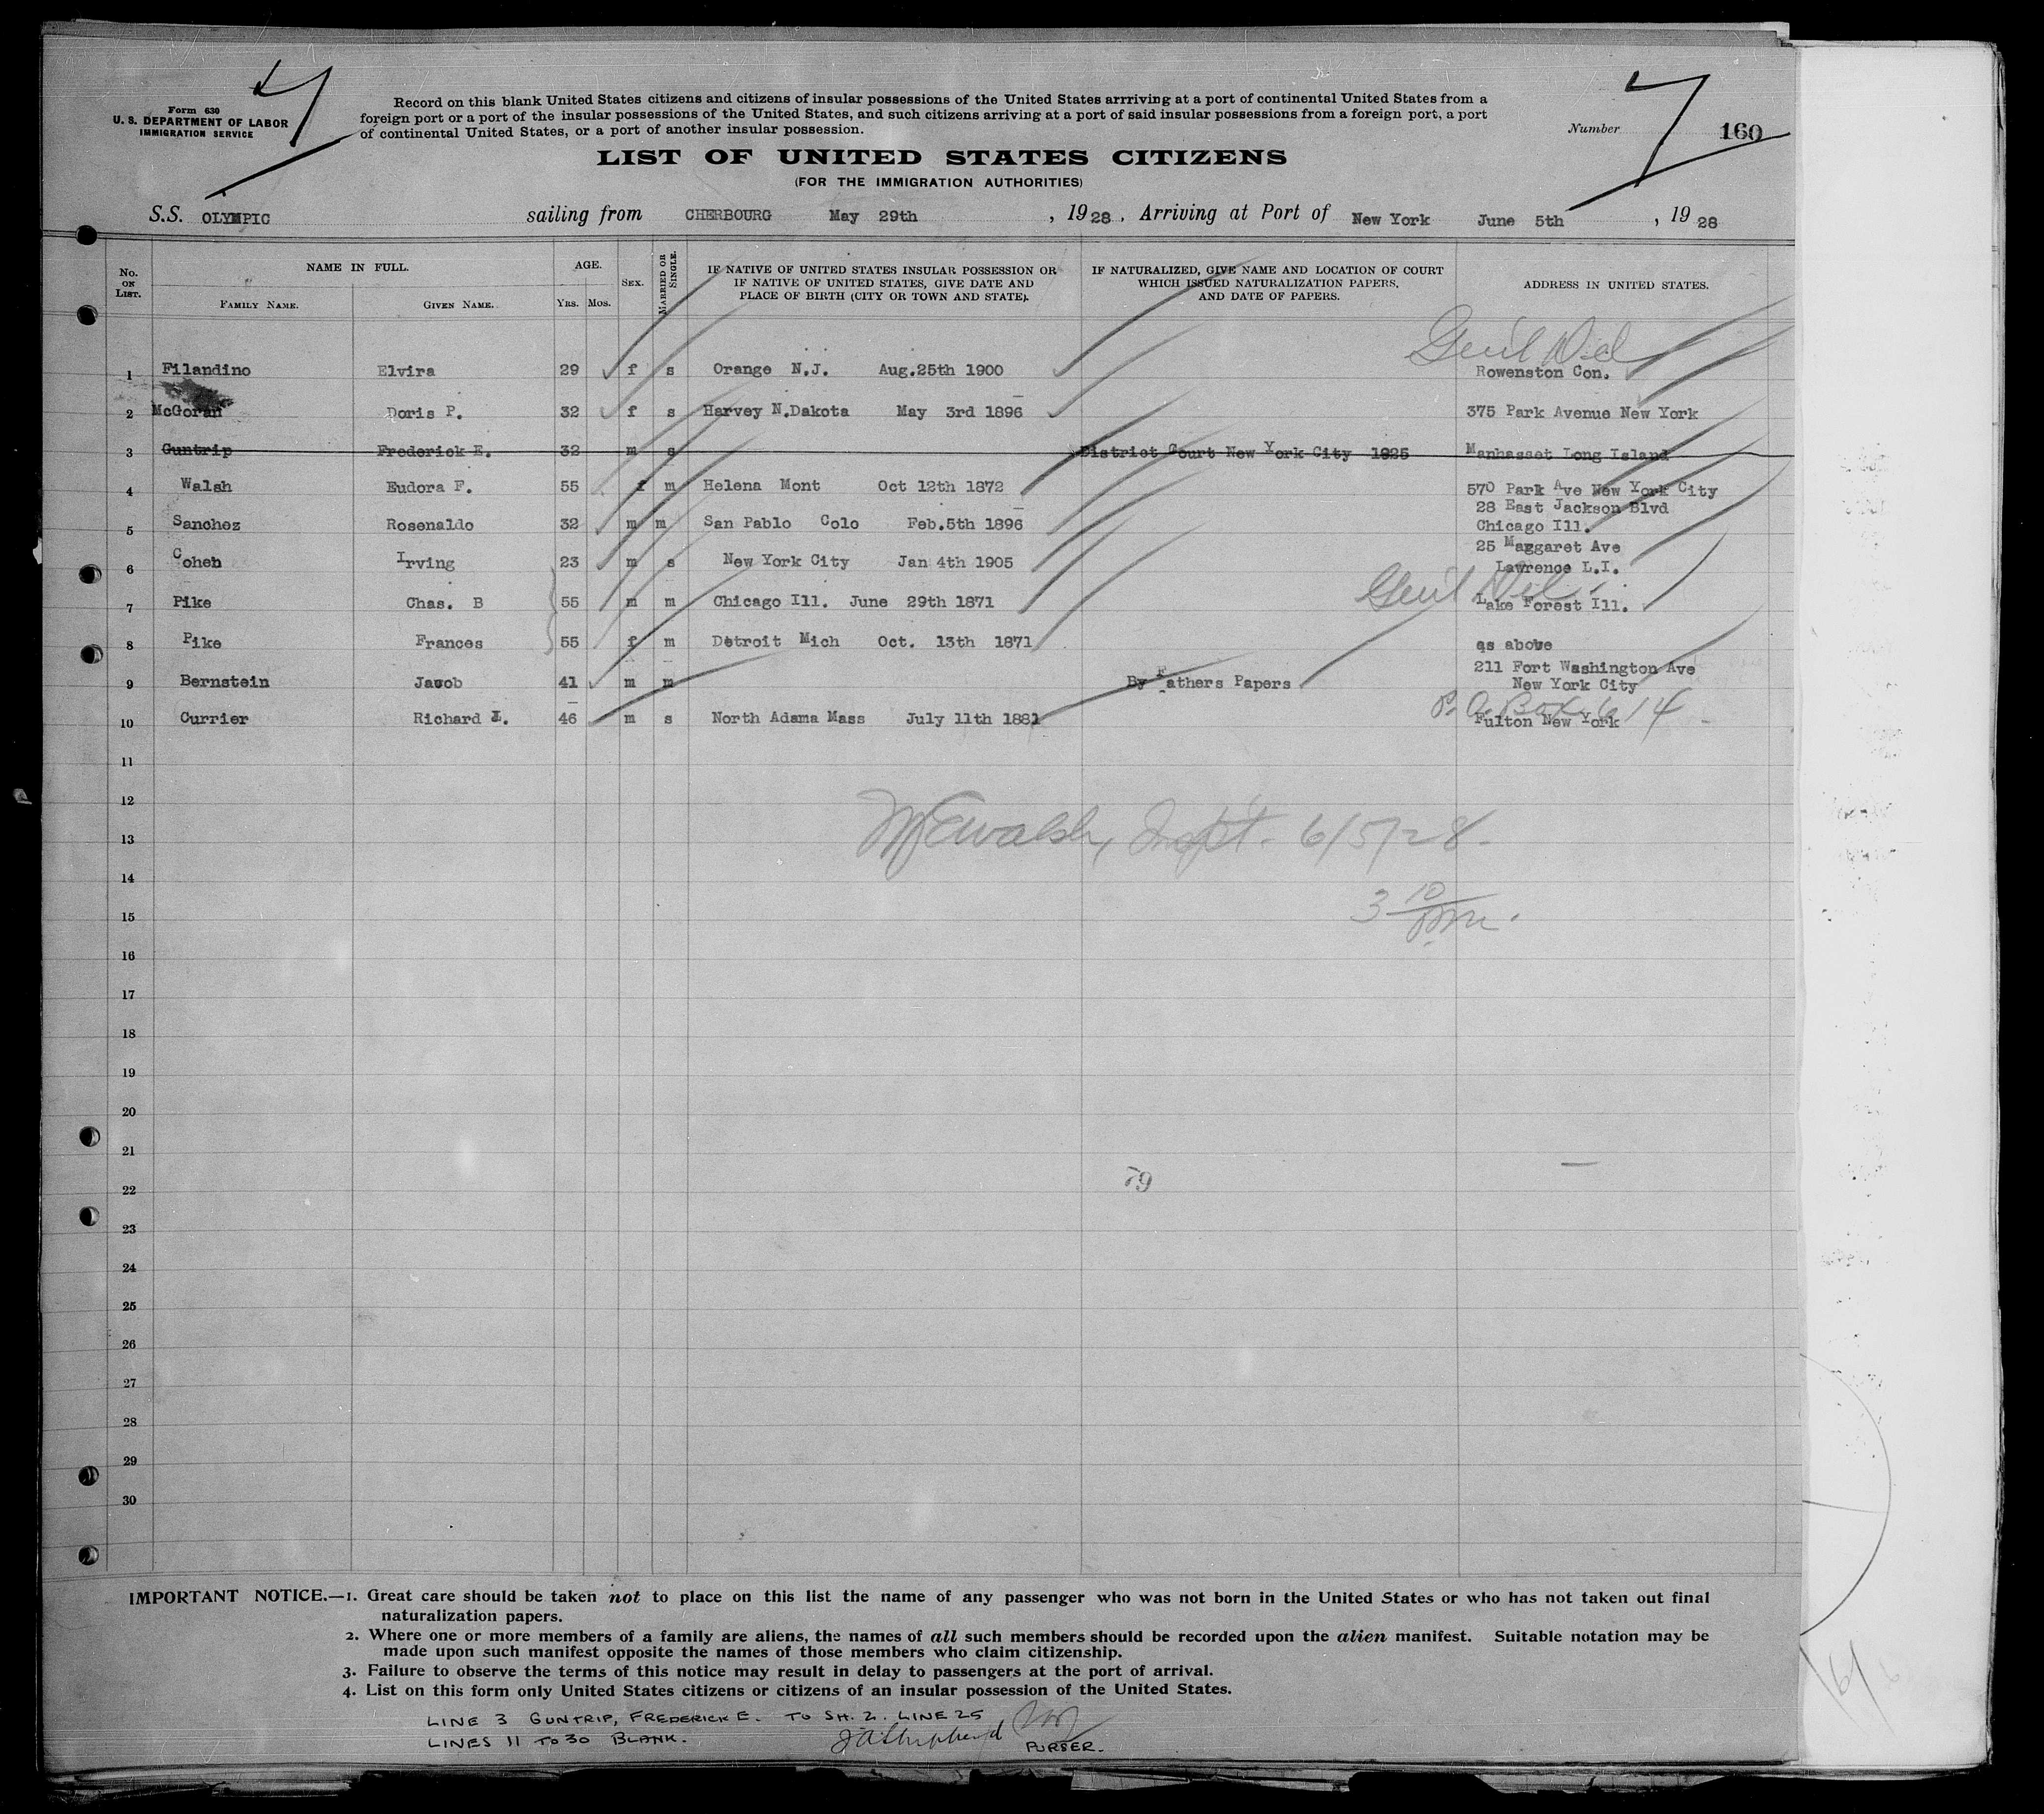 Form 630
U. S. DEPARTMENT OF LABOR
IMMIGRATION SERVICE
Record on this blank United States citizens and citizens of insular possessions of the United States arrriving at a port of continental United States from a
foreign port or a port of the insular possessions of the United States, and such citizens arriving at a port of said insular possessions from a foreign port, a port
of continental United States, or a port of another insular possession.
Number 160
LIST OF UNITED STATES CITIZENS
(FOR THE IMMIGRATION AUTHORITIES)
S.S. OLYMPIC sailing from CHERBOURG May 29th , 1928 , Arriving at Port of New York June 5th , 1928
No. ON LIST. NAME IN FULL. FAMILY NAME. GIVEN NAME. AGE. YRS. MOS. SEX. MARRIED OR SINGLE.
IF NATIVE OF UNITED STATES INSULAR POSSESSION OR
IF NATIVE OF UNITED STATES, GIVE DATE AND
PLACE OF BIRTH (CITY OR TOWN AND STATE).
IF NATURALIZED, GIVE NAME AND LOCATION OF COURT
WHICH ISSUED NATURALIZATION PAPERS,
AND DATE OF PAPERS.
ADDRESS IN UNITED STATES.
1 Filandino Elvira 29 f s Orange N.J. Aug.25th 1900 Rowenston Con.
2 McGoran Doris P. 32 f s Harvey N.Dakota May 3rd 1896 375 Park Avenue New York
3 Guntrip Frederick E. 32 m s District Court New York City 1925 Manhasset Long Island
4 Walsh Eudora F. 55 f m Helena Mont Oct 12th 1872 570 Park Ave New York City
5 Sanchez Rosenaldo 32 m m San Pablo Colo Feb.5th 1896 28 East Jackson Blvd
Chicago Ill.
6 Cohen Irving 23 m s New York City Jan 4th 1905 25 Maggaret Ave
Lawrence L.I.
7 Pike Chas. B 55 m m Chicago Ill. June 29th 1871 Lake Forest Ill.
8 Pike Frances 55 f m Detroit Mich Oct. 13th 1871 as above
9 Bernstein Jacob 41 m m By Fathers Papers 211 Fort Washington Ave
New York City
P.O. Box 614
10 Currier Richard L. 46 m s North Adama Mass July 11th 1881 Fulton New York
11
12
13 Walsh, Inspt. 6/5/28.
14
15 3 10 PM.
16
17
18
19
20
21
22 79
23
24
25
26
27
28
29
30
IMPORTANT NOTICE.—1. Great care should be taken not to place on this list the name of any passenger who was not born in the United States or who has not taken out final
naturalization papers.
2. Where one or more members of a family are aliens, the names of all such members should be recorded upon the alien manifest. Suitable notation may be
made upon such manifest opposite the names of those members who claim citizenship.
3. Failure to observe the terms of this notice may result in delay to passengers at the port of arrival.
4. List on this form only United States citizens or citizens of an insular possession of the United States.
LINE 3 GUNTRIP, FREDERICK E. TO SH. 2. LINE 25
LINES 11 TO 30 BLANK.
PURSER.